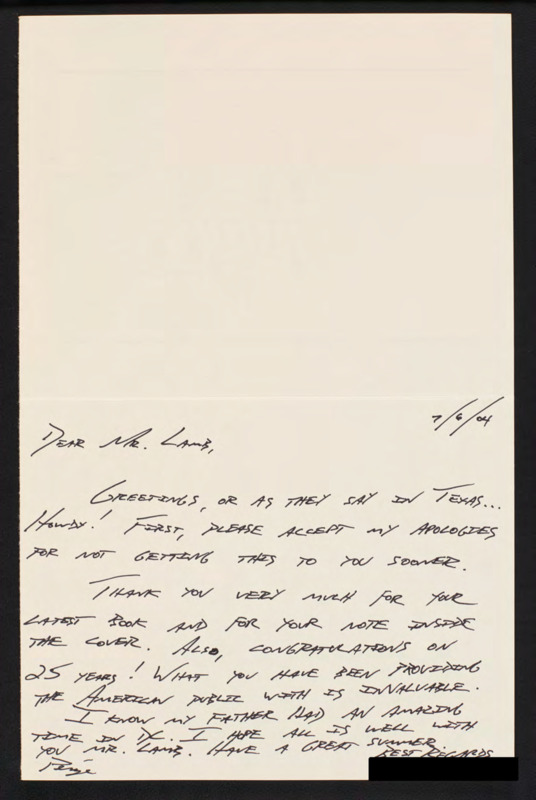 7/6/04
DEAR MR. LAMB,
GREETINGS, OR AS THEY SAY IN TEXAS...
HOWDY! FIRST, PLEASE ACCEPT MY APOLOGIES
FOR NOT GETTING THIS TO YOU SOONER.
THANK YOU VERY MUCH FOR YOUR
LATEST BOOK AND FOR YOUR NOTE INSIDE
THE COVER. ALSO, CONGRATULATIONS ON
25 YEARS! WHAT YOU HAVE BEEN PROVIDING
THE AMERICAN PUBLIC WITH IS INVALUABLE.
I KNOW MY FATHER HAD AN AMAZING
TIME IN DC. I HOPE ALL IS WELL WITH
YOU MR. LAMB. HAVE A GREAT SUMMER.
BEST REGARDS